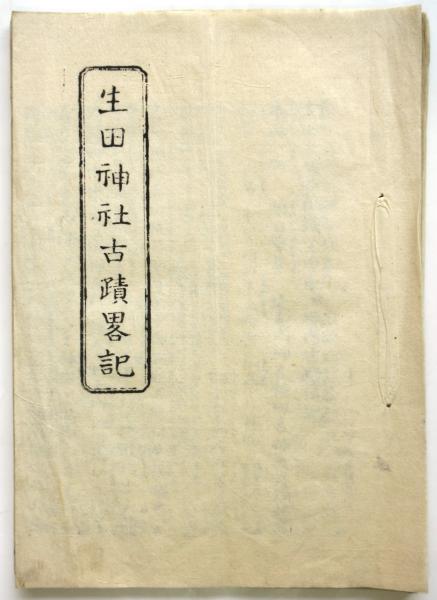 生田神社古蹟畧記